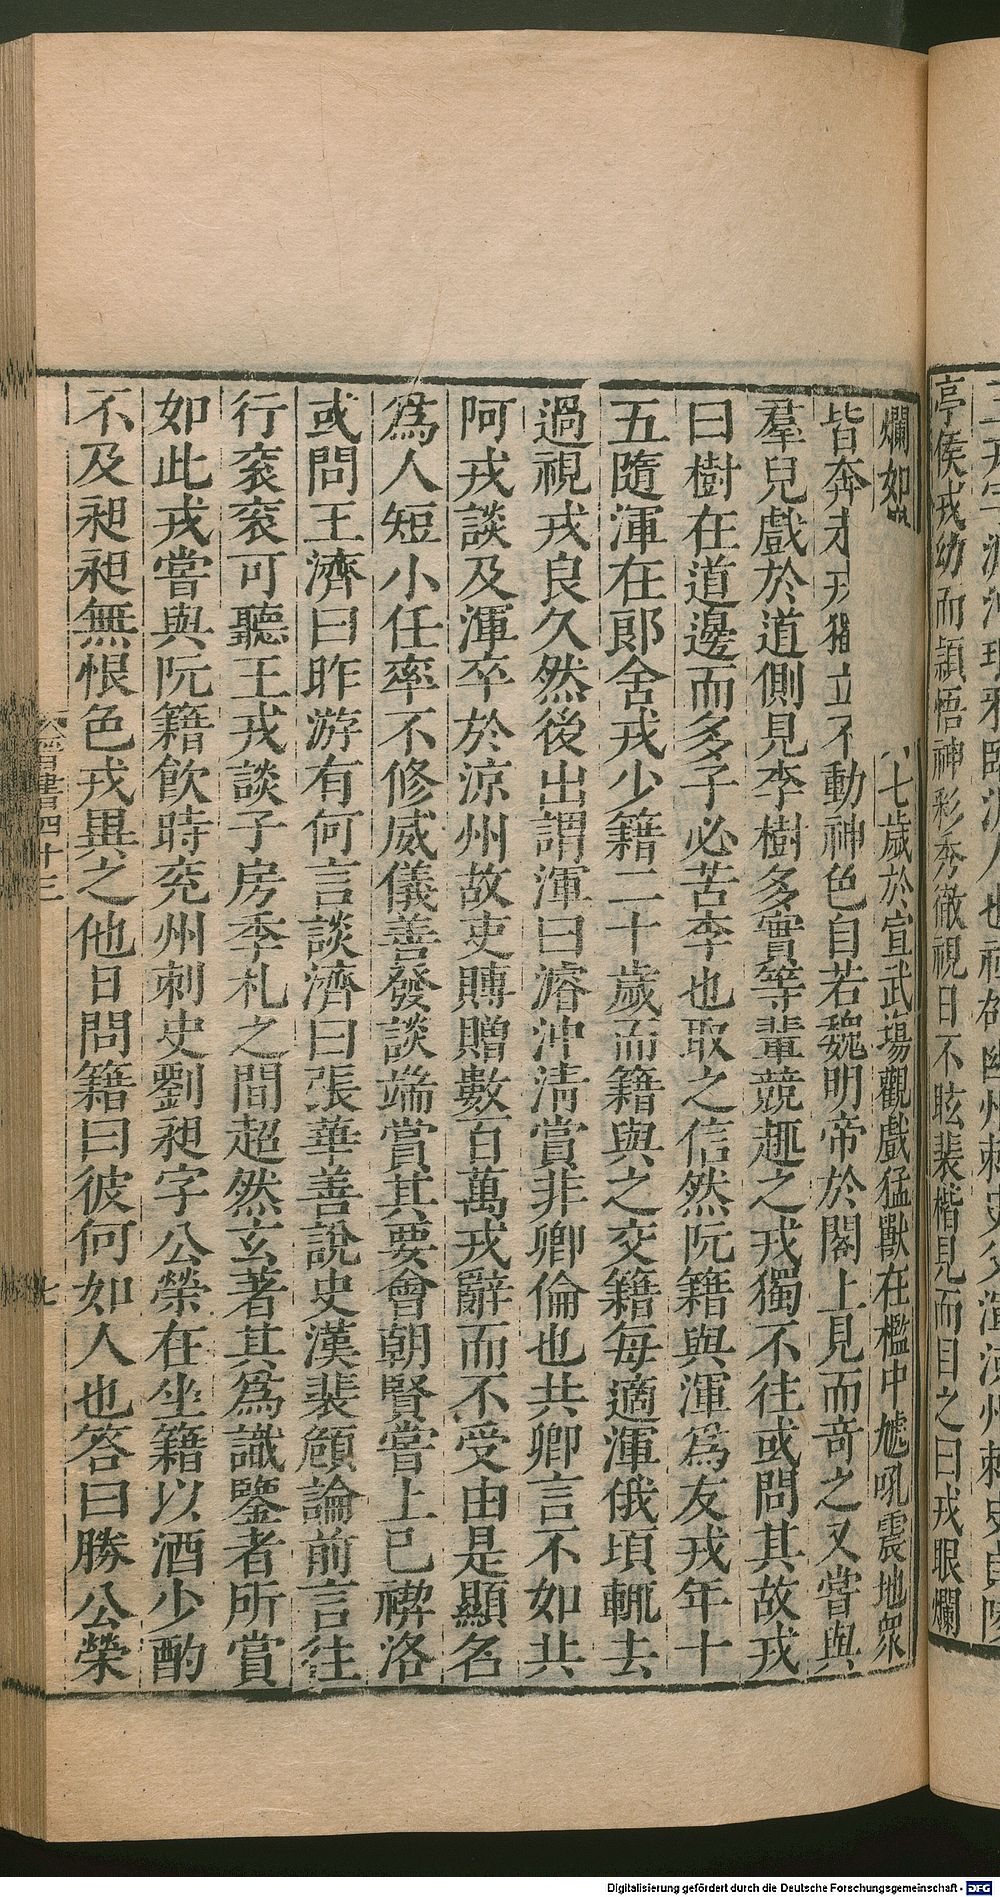 亭侯戎幼而穎悟神彩秀徹視日不眩裴楷見而目之曰戎眼爛
爛如 七歲於宣武塲觀戲猛獸在檻中虓吼震地衆
皆奔 戎獨立不動神色自若魏明帝於閣上見而竒之又嘗與
羣兒戲於道側見李樹多實等輩競趣之戎獨不往或問其故戎
曰樹在道邊而多子必苦李也取之信然阮籍與渾爲友戎年十
五隨渾在郎舍戎少籍二十歲而籍與之交籍每適渾俄頃輒去
過視戎良久然後出謂渾曰濬沖清賞非卿倫也共卿言不如共
阿戎談及渾卒於涼州故吏賻贈數百萬戎辭而不受由是顯名
爲人短小任率不修威儀善發談端賞其要會朝賢嘗上巳禊洛
或問王濟曰昨游有何言談濟曰張華善說史漢裴頠論前言往
行衮衮可聽王戎談子房季札之間超然玄著其爲識鑒者所賞
如此戎嘗與阮籍飲時兖州刺史劉昶字公榮在坐籍以酒少酌
不及昶昶無恨色戎異之他日問籍曰彼何如人也答曰勝公榮
晉書四十三
七
Digitalisierung gefördert durch die Deutsche Forschungsgemeinschaft - DFG